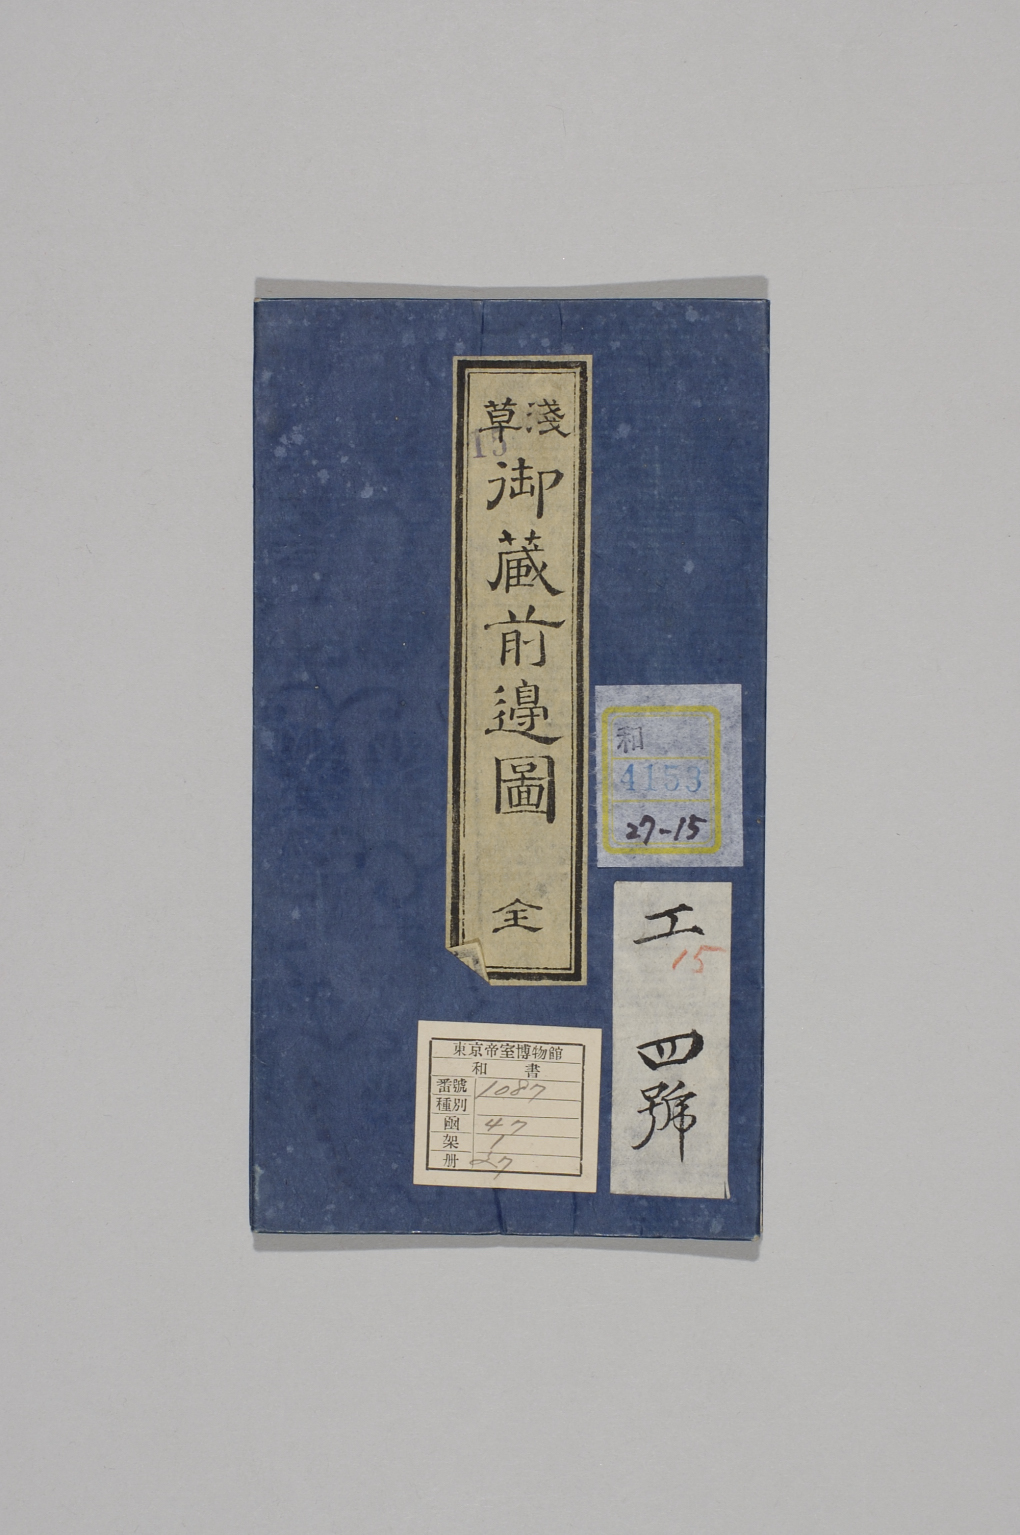 淺草
15
御藏前邉圖
全
和
4153
27-15
工
15
四號
東京帝室博物館
和書
番號 1087
種別
函 47
架 1
册 27